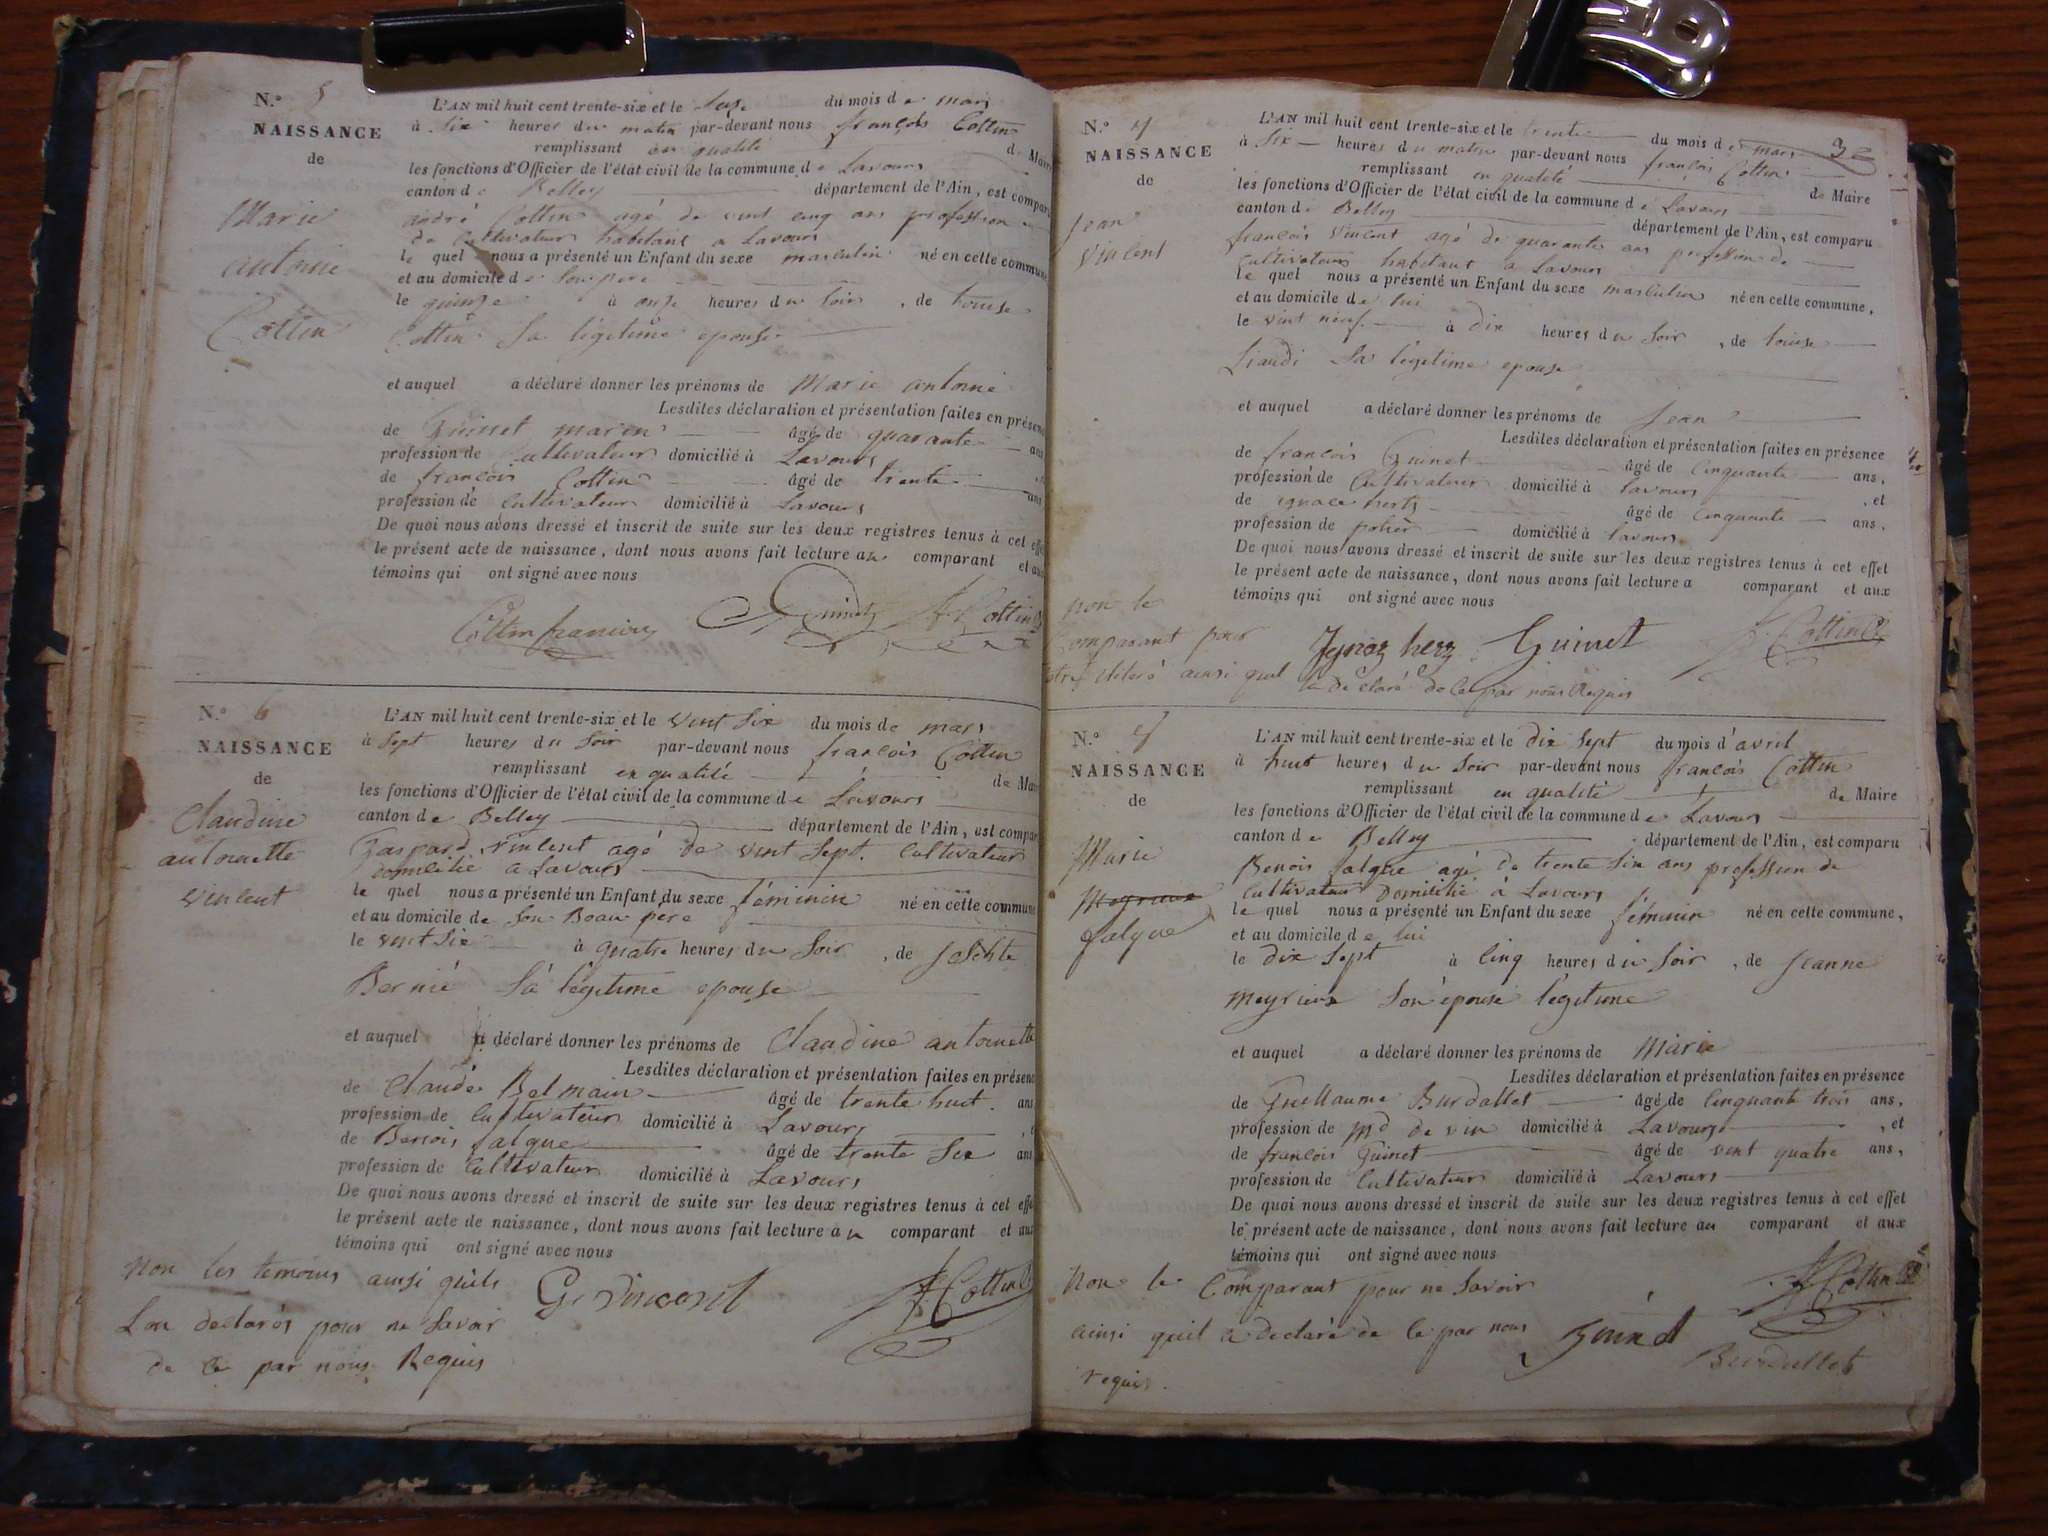 N.º 5
NAISSANCE
de
Marie
antoine
Cottin
L'AN mil huit cent trente-six et le seize du mois de mars
à six heures du matin par-devant nous françois Cottin
remplissant en qualité de Maire
les fonctions d'Officier de l'état civil de la commune de Lavours
canton de Belley département de l'Ain, est comparu
andré Cottin agé de vint cinq ans profession
de cultivateur habitant a Lavours
le quel nous a présenté un Enfant du sexe masculin né en cette commune
et au domicile de son pere
le quinze à onze heures du soir, de louise
Cottin sa légitime epouse
et auquel a déclaré donner les prénoms de Marie antoine
Lesdites déclaration et présentation faites en présence
de Guinet marin âgé de quarante ans
profession de Cultivateur domicilié à Lavours
de françois Cottin âgé de trente ans
profession de Cultivateur domicilié à Lavours
De quoi nous avons dressé et inscrit de suite sur les deux registres tenus à cet effet
le présent acte de naissance, dont nous avons fait lecture au comparant et aux
témoins qui ont signé avec nous
Cottin francois Guinet A. Cottin
N.º 6
NAISSANCE
de
Claudine
antoinette
vincent
L'AN mil huit cent trente-six et le vint six du mois de mars
à sept heures du soir par-devant nous françois Cottin
remplissant en qualité de Maire
les fonctions d'Officier de l'état civil de la commune de Lavours
canton de Belley département de l'Ain, est comparu
Gaspard vincent agé de vint sept. Cultivateur
domicilié a Lavours
le quel nous a présenté un Enfant du sexe féminin né en cette commune
et au domicile de son Beau pere
le vint six à quatre heures du soir, de
Bernié sa légitime epouse
et auquel a déclaré donner les prénoms de Claudine antoinette
Lesdites déclaration et présentation faites en présence
de Claude Belmain âgé de trente huit ans
profession de Cultivateur domicilié à Lavours, et
de Benois falque âgé de trente six ans
profession de Cultivateur domicilié à Lavours
De quoi nous avons dressé et inscrit de suite sur les deux registres tenus à cet effet
le présent acte de naissance, dont nous avons fait lecture au comparant et aux
témoins qui ont signé avec nous
non les temoins ainsi quils
Lon declarés pour ne savoir
de ce par nous Requis
G. vincent f. Cottin
N.º 7
NAISSANCE
de
Jean
Vincent
3
L'AN mil huit cent trente-six et le trente du mois de mars
à six heures du matin par-devant nous françois Cottin
remplissant en qualité de Maire
les fonctions d'Officier de l'état civil de la commune de Lavours
canton de Belley département de l'Ain, est comparu
françois vincent agé de quarante ans profession de
Cultivateur habitant a Lavours
le quel nous a présenté un Enfant du sexe masculin né en cette commune,
et au domicile de lui
le vint neuf à dix heures du soir, de louise
Liaudi sa légitime epouse
et auquel a déclaré donner les prénoms de Jean
Lesdites déclaration et présentation faites en présence
de françois Guinet âgé de Cinquante ans,
profession de Cultivateur domicilié à Lavours, et
de ignace hertz âgé de Cinquante ans,
profession de potier domicilié à lavours
De quoi nous avons dressé et inscrit de suite sur les deux registres tenus à cet effet
le présent acte de naissance, dont nous avons fait lecture a comparant et aux
témoins qui ont signé avec nous
non le
Comparant pour
ainsi quil
la declaré de ce par nous Requis
Jgnaz herz Guinet f. Cottin
N.º
NAISSANCE
de
Marie
Meyrieux
falque
L'AN mil huit cent trente-six et le dix sept du mois d'avril
à huit heures du soir par-devant nous françois Cottin
remplissant en qualité de Maire
les fonctions d'Officier de l'état civil de la commune de Lavours
canton de Belley département de l'Ain, est comparu
Benois falque agé de trente six ans profession de
Cultivateur Domicilié à Lavours
le quel nous a présenté un Enfant du sexe féminin né en cette commune,
et au domicile de lui
le dix sept à cinq heures du soir, de Jeanne
Meyrieux son épouse légitime
et auquel a déclaré donner les prénoms de Marie
Lesdites déclaration et présentation faites en présence
de Guillaume Burdallet âgé de Cinquante trois ans,
profession de Md de vin domicilié à Lavours, et
de françois Guinet âgé de vint quatre ans,
profession de Cultivateur domicilié à Lavours
De quoi nous avons dressé et inscrit de suite sur les deux registres tenus à cet effet
le présent acte de naissance, dont nous avons fait lecture au comparant et aux
témoins qui ont signé avec nous
Non le Comparant pour ne savoir
ainsi quil a declaré de ce par nous
requis.
Guinet
f. Cottin
Burdallet